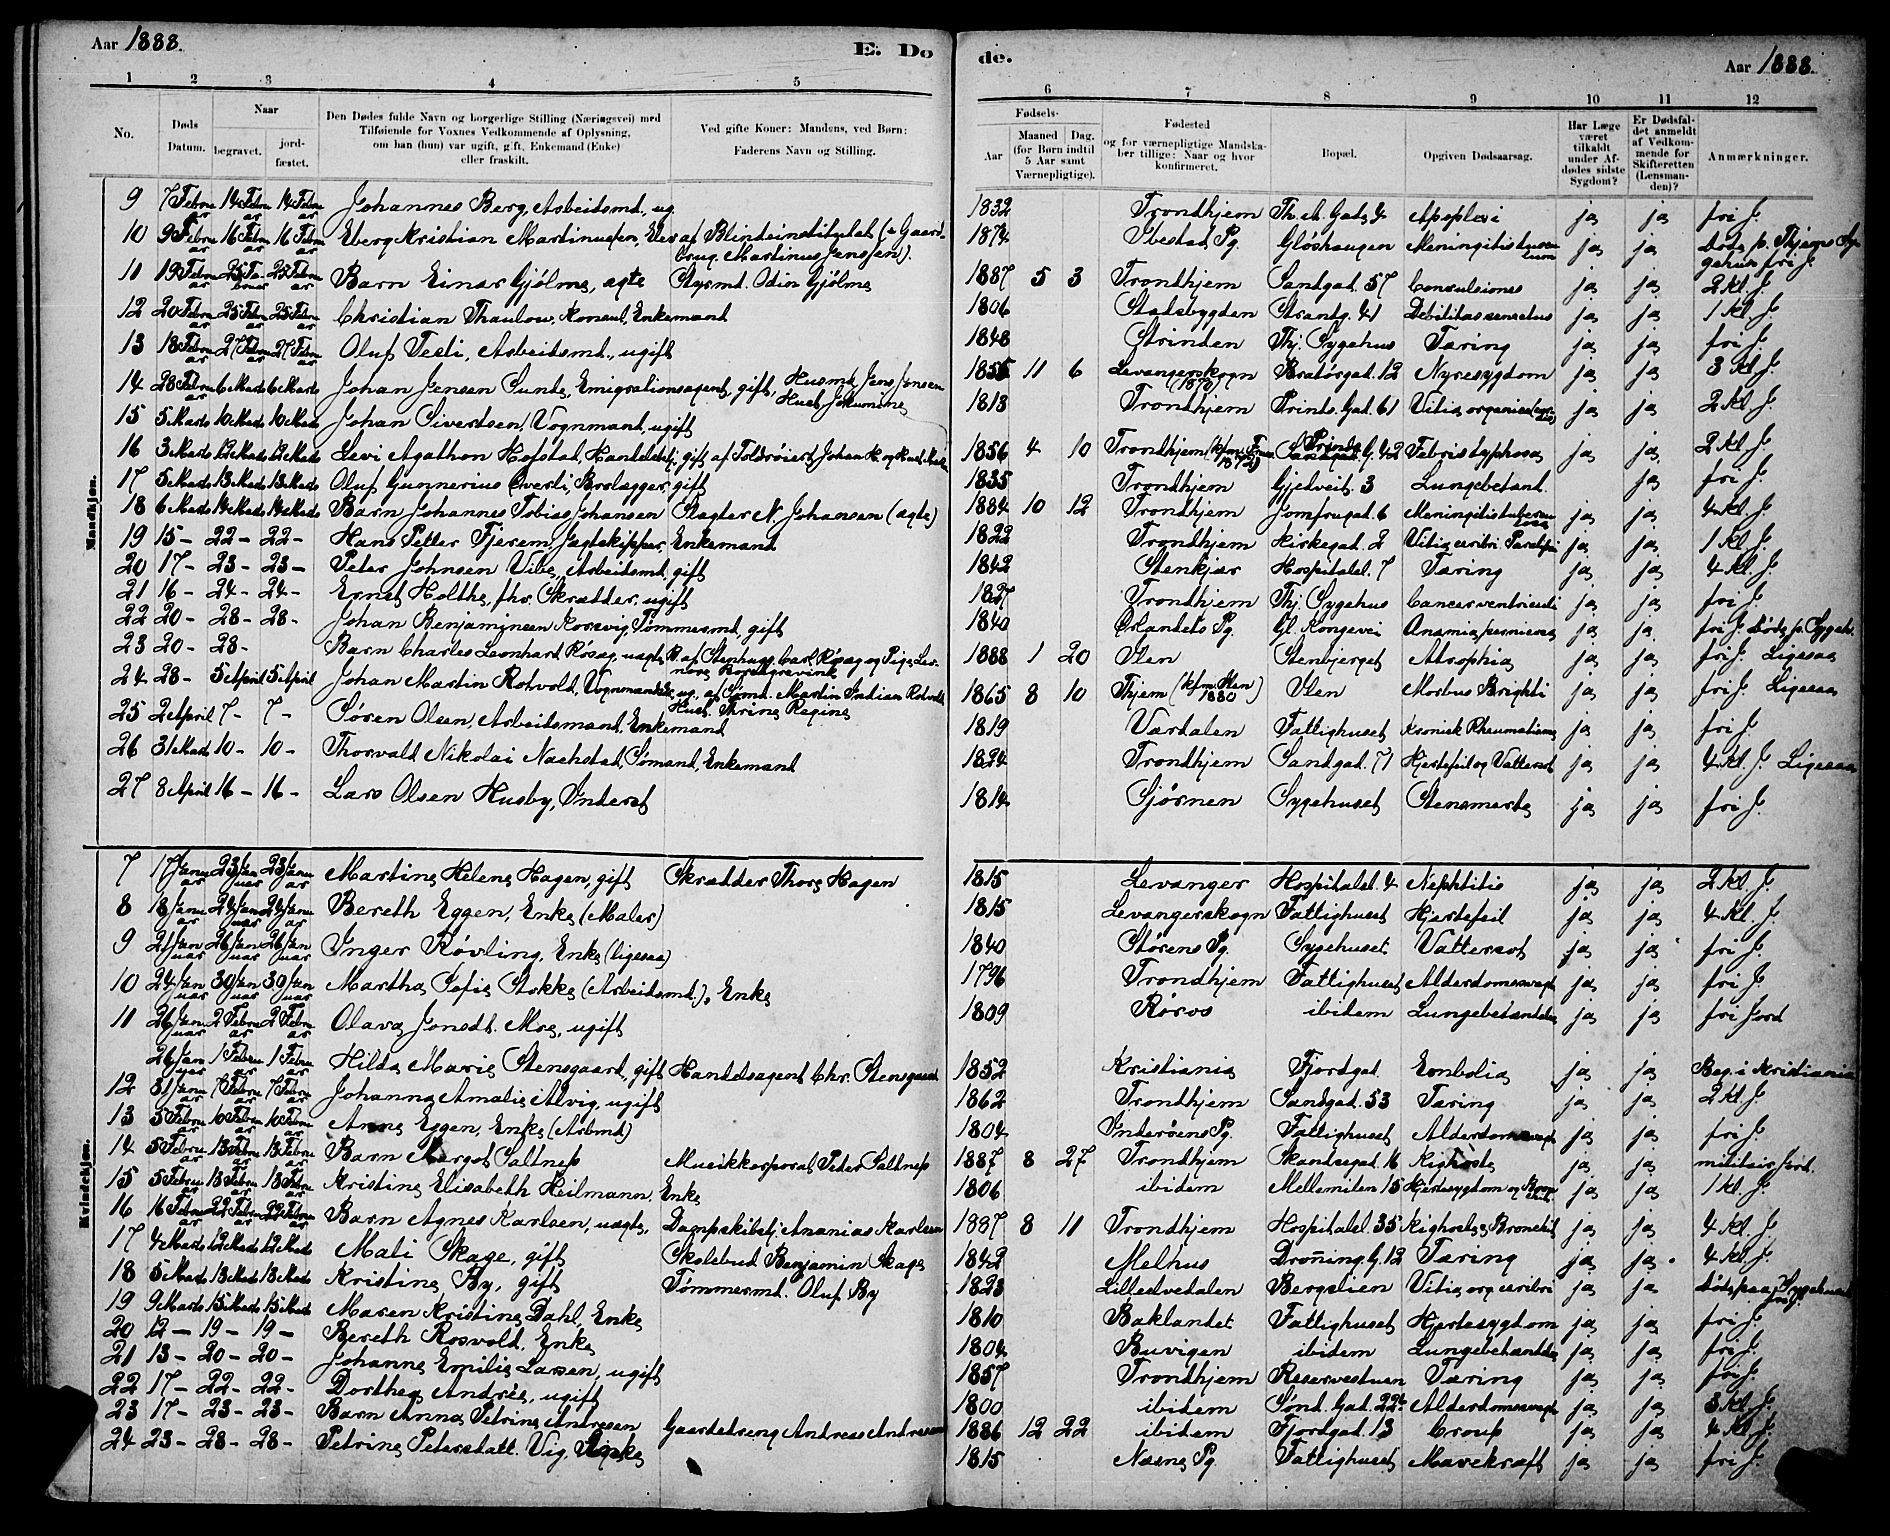 Aar 1888. E. Dø
de. Aar 1888.
1 2 3 4 5
6 7 8 9 10 11 12
No.
Døds Datum.
Naar
begravet. jordfæstet.
Den Dødes fulde Navn og borgerlige Stilling (Næringsvei) med
Tilføiende for Voxnes Vedkommende af Oplysning,
om han (hun) var ugift, gift, Enkemand (Enke)
eller fraskilt.
Ved gifte Koner: Mandens, ved Børn:
Faderens Navn og Stilling.
Fødsels-
Aar
Maaned (for Børn indtil 5 Aar samt Værnepligtige).
Dag.
Fødested
og for værnepligtige Mandskaber tillige: Naar og hvor konfirmeret.
Bopæl.
Opgiven Dødsaarsag.
Har Læge været tilkaldt under Afdødes sidste Sygdom?
Er Dødsfaldet anmeldt af Vedkommende for Skifteretten (Lensmanden)?
Anmærkninger.
Mandkjøn.
9 7 Februar 14 Februar 14 Februar Johannes Berg, Arbeidsmd., ug. 1832 Trondhjem Th. A. Gade 4 Apoplexi ja ja fri J.
10 9 Februar 16 Februar 16 Februar Eberg Kristian Martinussen, Elev af Blindeinstitutet (+ Gaardbrug. Martinus Jenssen). 1874 Ibestad Pg. Gløshaugen Meningitis ja ja døde p. Thjems Sygehus fri J.
11 19 Februar 25 Februar 25 Februar Barn Einar Gjølme, ægte Styrmd. Odin Gjølme 1887 5 3 Trondhjem Sandgad. 57 Convulsiones ja ja 2 kl. J.
12 20 Februar 25 Februar 25 Februar Christian Thaulow, Konsul, Enkemand 1806 Stadsbygden Strandg. 41 Debilitas senectus ja ja 1 kl. J.
13 18 Februar 27 Februar 27 Februar Oluf Testi, Arbeidsmd., ugift 1848 Strinden Thj. Sygehus Tæring ja ja fri J.
14 28 Februar 6 Marts 6 Marts Johan Jensen Sunde, Emigrationsagent, gift, Husmd. Jens Jensen Hust. 1855 11 6 Levangerskogn (1872) Bratørgad. 12 Nyresygdom ja ja 3 kl. J.
15 5 Marts 10 Marts 10 Marts Johan Sivertsen, Vognmand, ugift 1813 Trondhjem Prinds. Gad. 61 Vitia organica ja ja 2 kl. J.
16 3 Marts 12 Marts 12 Marts Levi Agathon Hofstad, Handelsbetj. gift af Toldrøiert Johan H. og Hust. 1856 4 10 Trondhjem Prinds. G. 42 Febris typhosa ja ja 2 kl. J.
17 5 Marts 13 Marts 13 Marts Oluf Gunnerius Överli, Brolægger, gift 1835 Trondhjem Gjedveit. 3 Lungebetænd. ja fri J.
18 6 Marts 14 Marts 14 Marts Barn Johannes Tobias Johansen Slagter N. Johansen (ægte) 1884 10 12 Trondhjem Jomfrugad. 6 Meningitis tuberculosa ja ja 4 kl. J.
19 15 - 22 - 22 - Hans Petter Fjerem, Jægtskipper, Enkemand 1822 Trondhjem Kirkegad. 2 Vitia ceribri Paralysi ja ja 1 kl. J.
20 17 - 23 - 23 - Peter Johnsen Vibe, Arbeidsmd. gift 1842 Stenkjær Hospitalsl. 7 Tæring ja ja 4 kl. J.
21 16 - 24 - 24 - Ernst Holthe, fhv. Skrædder, ugift 1827 Trondhjem Thj. Sygehus Cancer ventriculi ja ja fri J.
22 20 - 28 - 28 - Johan Benjaminsen Korsvig, Tømmermd., gift 1840 Ørlandets Pg. Gl. Kongevei Anæmia perniciosa ja ja fri J. døde p. Sygeh.
23 20 - 28 - Barn Charles Leonhard Røsæg, uægte B. af Stenhugg. Carl Røsæg og Pige 1888 1 20 Ilen Stenbjerget Atrophia ja ja fri J. Ligesaa
24 28 - 5 April 5 April Johan Martin Rotvold, Vognmand, ug., af Sømd. Martin Rotvold Hust. Thrine Regine 1865 8 10 Thjem (kfm. Ilen 1880) Ilen Morbus Brighti ja ja fri J. Ligesaa
25 2 April 7 - 7 - Søren Olsen, Arbeidsmand, Enkemand 1819 Værdalen Fattighuset Kronisk Rheumatisme ja ja fri J.
26 31 Marts 10 - 10 - Thorvald Nikolai Nachstad, Sømand, Enkemand 1824 Trondhjem Sandgad. 71 Hjertefeil og Vattersot ja ja 4 kl. J. Ligesaa
27 8 April 16 - 16 - Lars Olsen Husby, Inderst 1814 Sjørnen Sygehuset Stensmerte ja ja fri J.
Kvindekjøn.
7 17 Januar 23 Januar 23 Januar Martine Helene Hagen, gift Skrædder Thore Hagen 1815 Levanger Hospitalsl. 4 Nephtitis ja ja 2 kl. J.
8 18 Januar 24 Januar 24 Januar Bereth Eggen, Enke (Maler) 1815 Levangerskogn Fattighuset Hjertefeil ja ja 4 kl. J.
9 21 Januar 26 Januar 26 Januar Inger Røvling, Enke (ligesaa) 1840 Størens Pg. Sygehuset Vattersot ja ja fri J.
10 24 Januar 30 Januar 30 Januar Martha Sofie Stokke (Arbeidsmd.), Enke 1796 Trondhjem Fattighuset Alderdomssvagh. ja ja fri J.
11 26 Januar 2 Februar 2 Februar Olava Jonsdt. Moe, ugift 1809 Røros ibidem Lungebetændelse ja ja fri Jord
26 Januar 1 Februar 1 Februar Hilda Marie Stensgaard, gift Handelsagent Chr. Stensgaard 1852 Kristiania Fjordgad. Embolia ja ja Beg. i Kristiania
12 31 Januar 7 Februar 7 Februar Johanna Amalie Alvig, ugift 1862 Trondhjem Sandgad. 53 Tæring ja ja 2 kl. J.
13 5 Februar 10 Februar 10 Februar Anne Eggen, Enke (Arbmd) 1804 Inderøens Pg. Fattighuset Alderdomssvagh. ja ja fri J.
14 5 Februar 13 Februar 13 Februar Barn Margot Saltnes Musikkorporal Peder Saltnes 1887 8 27 Trondhjem Skandsegad. 16 Kighoste ja ja militair Jord.
15 5 Februar 13 Februar 13 Februar Kristine Elisabeth Heilmann, Enke 1806 ibidem Mellemilen 15 Hjertesygdom og ja ja 1 kl. J.
16 16 Februar 22 Februar 22 Februar Barn Agnes Karlsen, uægte, Dampskibsbetj. Ananias Karlsen 1887 8 11 Trondhjem Hospitalsl. 35 Kighoste, Bronchit ja ja 4 kl. J.
17 4 Marts 12 Marts 12 Marts Mali Skage, gift Skolebud Benjamin Skage 1842 Melhus Dronning. G. 12 Tæring ja ja 4 kl. J.
18 5 Marts 13 Marts 13 Marts Kristine By, gift Tømmermd. Oluf By 1823 Lilleelvedalen Bergslien Vitia org. ceribri ja ja døde paa Sygehuset fri J.
19 9 Marts 15 Marts 15 Marts Maren Kristine Dahl, Enke 1810 Baklandet Fattighuset Hjertesygdom ja ja fri J.
20 12 - 19 - 19 - Bereth Rosvold, Enke 1804 Buvigen ibidem Lungebetændelse ja ja fri J.
21 13 - 20 - 20 - Johanne Emilie Larsen, ugift 1857 Trondhjem Reservestuen Tæring ja ja fri J.
22 17 - 22 - 22 - Dorthea Andrée, ugift 1800 ibidem Sønd. Gad. 22 Alderdomssvagh ja ja 3 kl. J.
23 17 - 23 - 23 - Barn Anna Petrine Andresen Gaardsdreng Andreas Andresen 1886 12 22 ibidem Fjordgad. 13 Croup ja ja 4 kl. J.
24 23 - 28 - 28 - Petrine Petersdatt. Vig, Enke 1815 Næsne Pg. Fattighuset Mavekræft ja ja fri J.